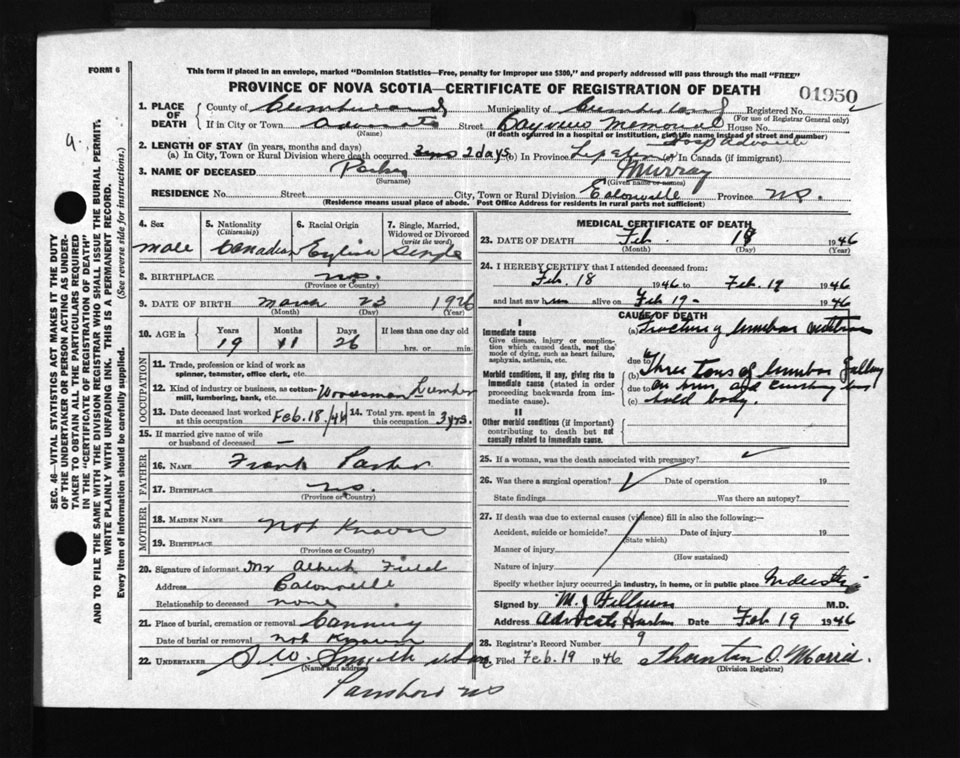 FORM 6
This form if placed in an envelope, marked "Dominion Statistics—Free, penalty for improper use $300," and properly addressed will pass through the mail "FREE"
PROVINCE OF NOVA SCOTIA—CERTIFICATE OF REGISTRATION OF DEATH
01950
1. PLACE OF DEATH County of Cumberland Municipality of Cumberland Registered No.
(For use of Registrar General only)
If in City or Town Advocate Street Bayview Memorial House No.
(Name) (If death occurred in a hospital or institution, give its name instead of street and number)
Hosp Advocate
2. LENGTH OF STAY (in years, months and days)
(a) In City, Town or Rural Division where death occurred 2 days (b) In Province (c) In Canada (if immigrant)
3. NAME OF DECEASED Parker Murray
(Surname) (Given name or names)
RESIDENCE No. Street City, Town or Rural Division Eatonville Province NS.
(Residence means usual place of abode. Post Office Address for residents in rural parts not sufficient)
4. Sex 5. Nationality (Citizenship) 6. Racial Origin 7. Single, Married, Widowed or Divorced (write the word)
Male Canadian English Single
8. BIRTHPLACE NS.
(Province or Country)
9. DATE OF BIRTH March 23 1926
(Month) (Day) (Year)
10. AGE in Years Months Days If less than one day old
19 11 26 hrs. or min.
OCCUPATION
11. Trade, profession or kind of work as spinner, teamster, office clerk, etc.
12. Kind of industry or business, as cotton-mill, lumbering, bank, etc. Woodsman Lumber
13. Date deceased last worked at this occupation Feb. 18/46 14. Total yrs. spent in this occupation 3 yrs.
15. If married give name of wife or husband of deceased —
FATHER
16. NAME Frank Parker
17. BIRTHPLACE NS.
(Province or Country)
MOTHER
18. MAIDEN NAME Not Known
19. BIRTHPLACE
(Province or Country)
20. Signature of informant Mr Albert Field
Address Eatonville
Relationship to deceased none
21. Place of burial, cremation or removal Canning
Date of burial or removal Not Known
22. UNDERTAKER D. W. Smith
(Name and address)
Parrsboro NS
MEDICAL CERTIFICATE OF DEATH
23. DATE OF DEATH Feb. 19 1946
(Month) (Day) (Year)
24. I HEREBY CERTIFY that I attended deceased from:
Feb. 18 1946 to Feb. 19 1946
and last saw him alive on Feb 19 - 1946
CAUSE OF DEATH
I
Immediate cause
Give disease, injury or complication which caused death, not the mode of dying, such as heart failure, asphyxia, asthenia, etc.
(a) Fracture of lumbar vertebrae
due to
Morbid conditions, if any, giving rise to immediate cause (stated in order proceeding backwards from immediate cause).
(b) Three tons of lumber falling
due to on him and crushing
(c) body.
II
Other morbid conditions (if important) contributing to death but not causally related to immediate cause.
25. If a woman, was the death associated with pregnancy?
26. Was there a surgical operation? Date of operation 19
State findings Was there an autopsy?
27. If death was due to external causes (violence) fill in also the following:—
Accident, suicide or homicide? Date of injury 19
(State which)
Manner of injury
(How sustained)
Nature of injury
Specify whether injury occurred in industry, in home, or in public place Industry
Signed by M.D.
Address Advocate Harbor Date Feb 19 1946
28. Registrar's Record Number 9
Filed Feb. 19 1946 Thornton O. Morris.
(Division Registrar)
SEC. 46—VITAL STATISTICS ACT MAKES IT THE DUTY
OF THE UNDERTAKER OR PERSON ACTING AS UNDER-
TAKER TO OBTAIN ALL THE PARTICULARS REQUIRED
IN THE "CERTIFICATE OF REGISTRATION OF DEATH"
AND TO FILE THE SAME WITH THE DIVISION REGISTRAR WHO SHALL ISSUE THE BURIAL PERMIT.
WRITE PLAINLY WITH UNFADING INK. THIS IS A PERMANENT RECORD.
Every item of information should be carefully supplied. (See reverse side for instructions.)
9.